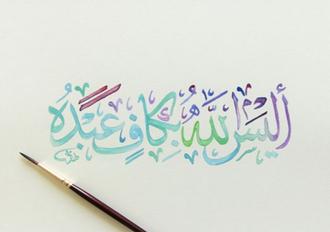 أليس الله بكافٍ عبدهُ